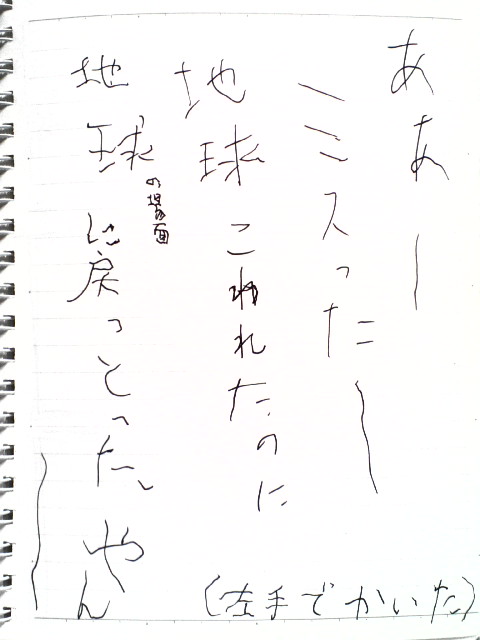 ああー
ミスった〜
地球こわれたのに
地球の場面に戻っとった。やん〜
（左手でかいた）